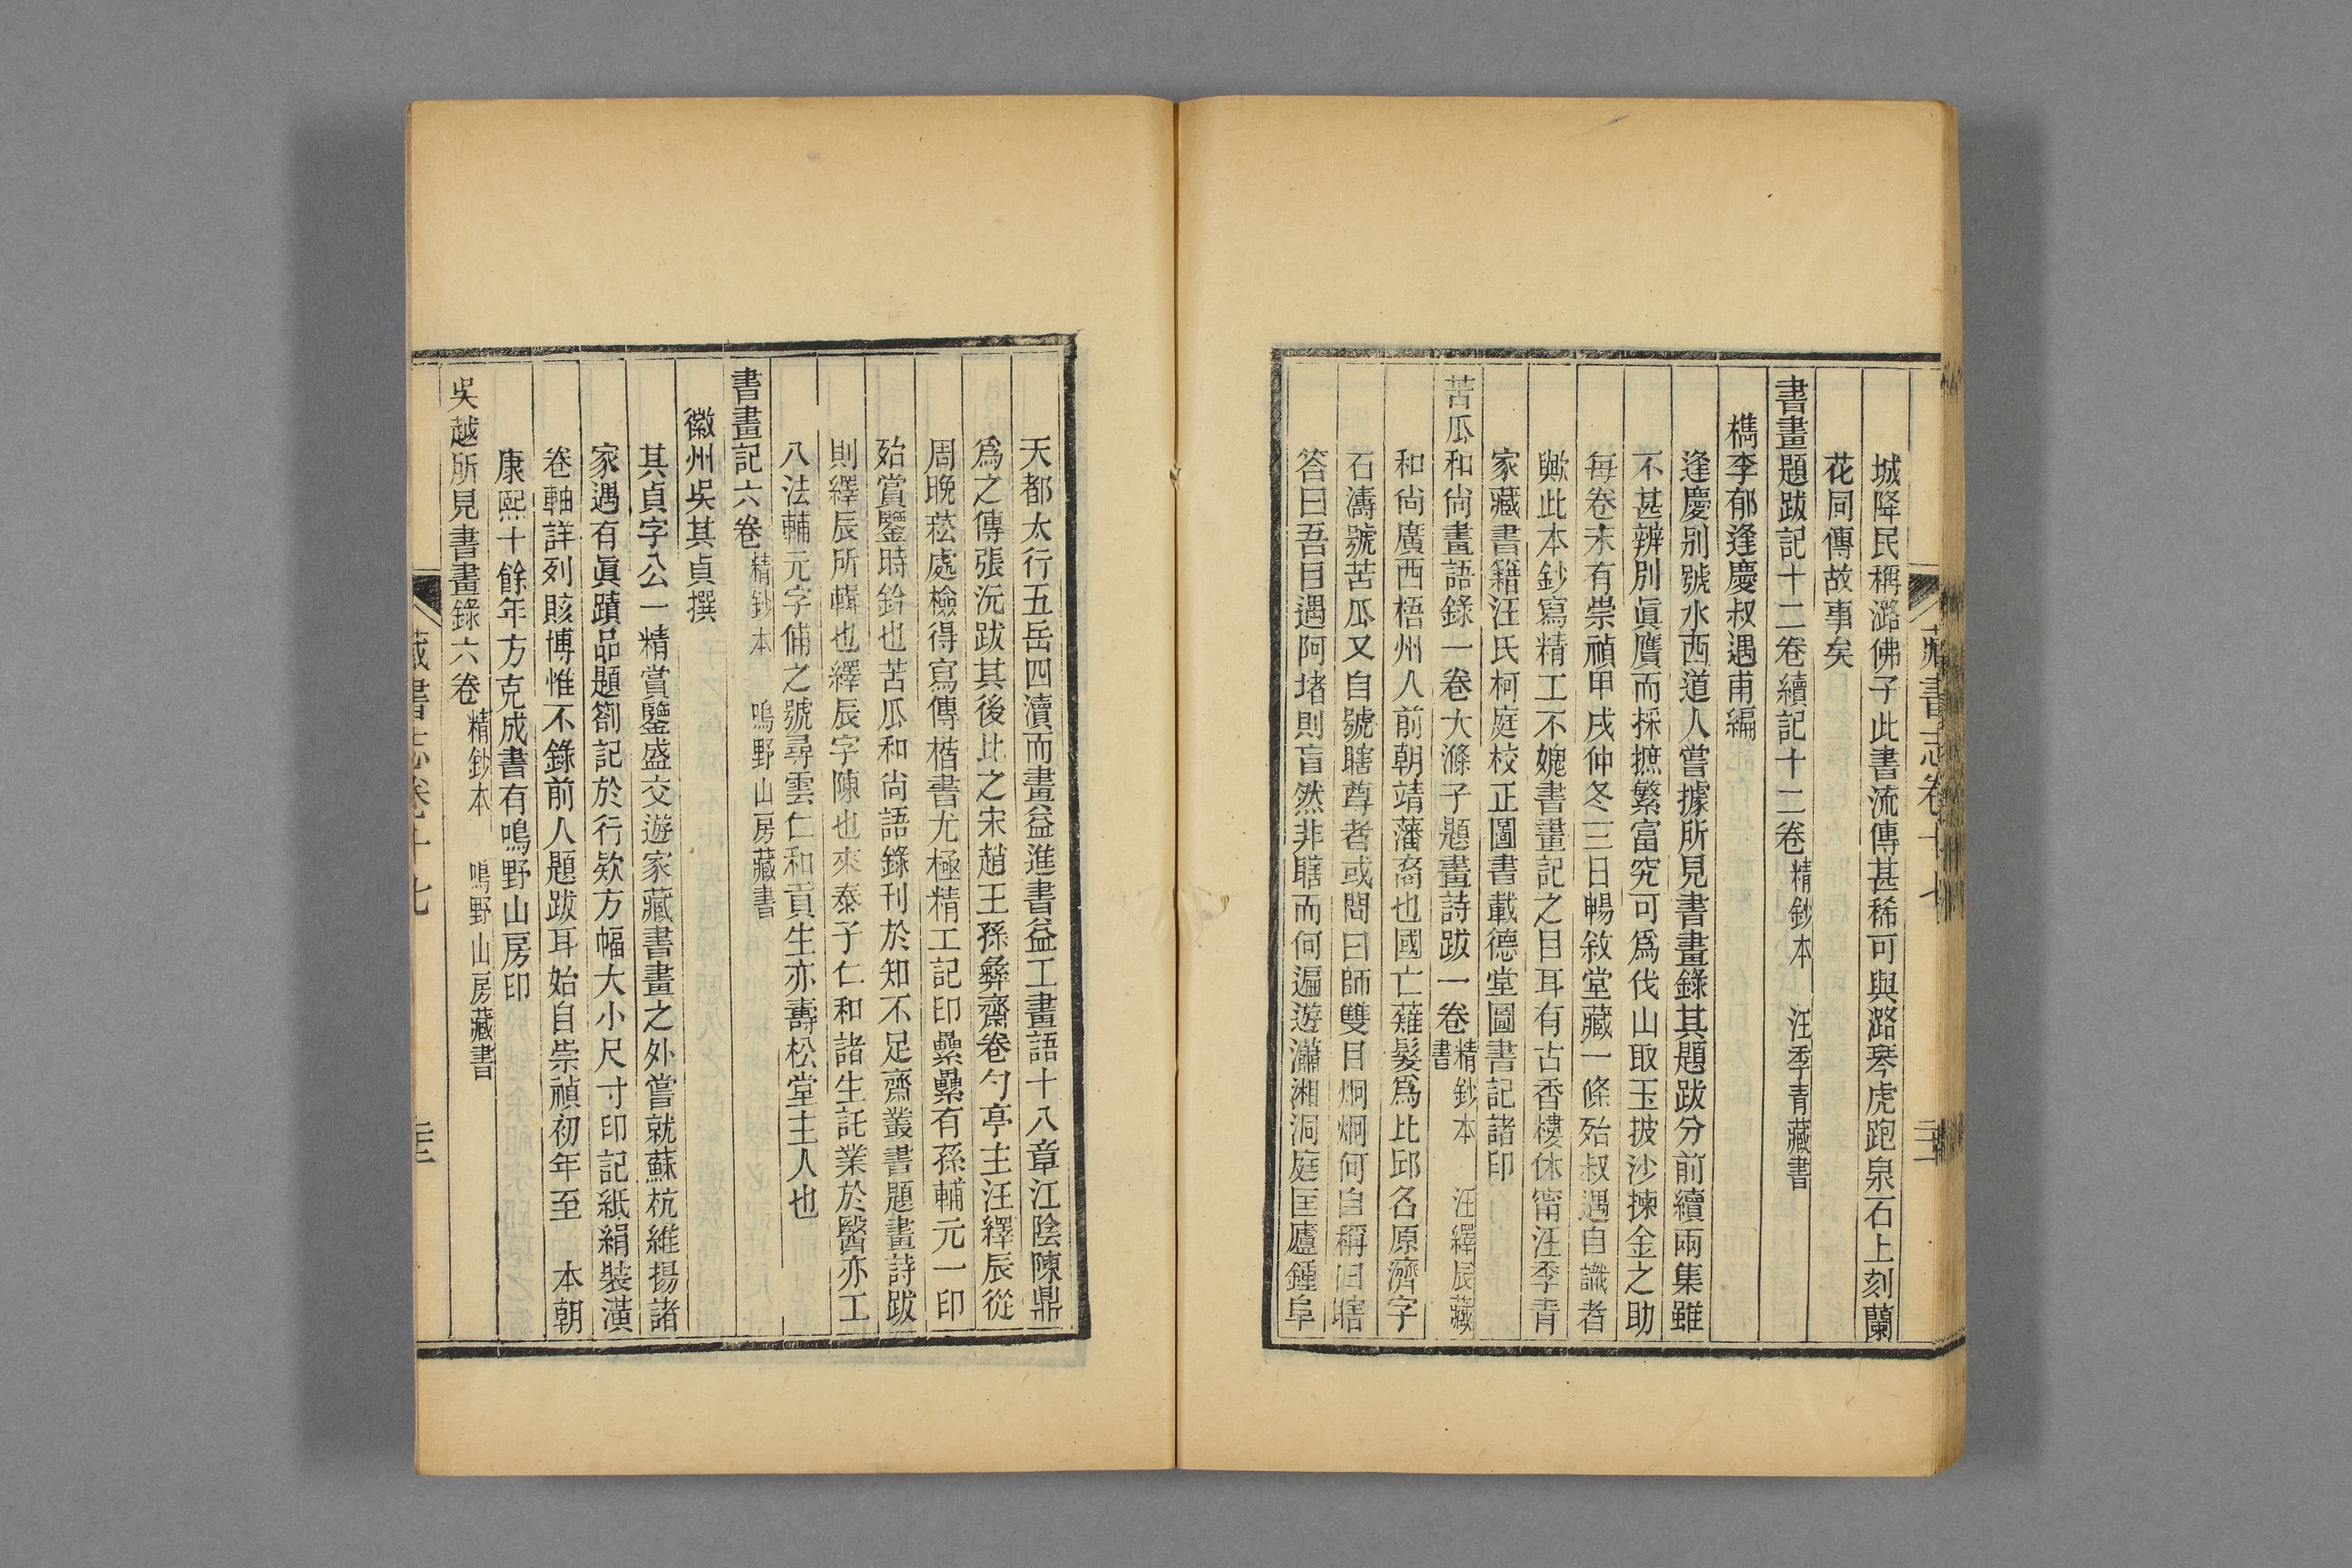 藏書志卷十七
城降民稱潞佛子此書流傳甚稀可與潞琴虎跑泉石上刻蘭
花同傳故事矣
書畫題跋記十二卷續記十二卷精鈔本　汪季青藏書
檇李郁逢慶叔遇甫編
逢慶别號水西道人嘗據所見書畫錄其題跋分前續兩集雖
不甚辨別眞贋而採摭繁富究可爲伐山取玉披沙揀金之助
每卷末有崇禎甲戌仲冬三日暢敘堂藏一條殆叔遇自識者
歟此本鈔寫精工不媿書畫記之目耳有古香樓休甯汪季青
家藏書籍汪氏柯庭校正圖書載德堂圖書記諸印
苦瓜和尚畫語錄一卷大滌子題畫詩跋一卷精鈔本　汪繹辰藏書
和尚廣西梧州人前朝靖藩裔也國亡薙髮爲比邱名原濟字
石濤號苦瓜又自號瞎尊者或問曰師雙目炯炯何自稱曰瞎
答曰吾目遇阿堵則盲然非瞎而何遍遊瀟湘洞庭匡廬鍾阜
天都太行五岳四瀆而畫益進書益工畫語十八章江陰陳鼎
爲之傳張沅跋其後比之宋趙王孫彝齋卷勺亭主汪繹辰從
周晚菘處檢得寫傳楷書尤極精工記印纍纍有孫輔元一印
殆賞鑒時鈐也苦瓜和尚語錄刊於知不足齋叢書題畫詩跋
則繹辰所輯也繹辰字陳也來泰子仁和諸生託業於醫亦工
八法輔元字俌之號尋雲仁和貢生亦壽松堂主人也
書畫記六卷精鈔本　鳴野山房藏書
徽州吳其貞撰
其貞字公一精賞鑒盛交遊家藏書畫之外嘗就蘇杭維揚諸
家遇有眞蹟品題劄記於行欵方幅大小尺寸印記紙絹裝潢
卷軸詳列賅博惟不錄前人題跋耳始自崇禎初年至　本朝
康熙十餘年方克成書有鳴野山房印
吳越所見書畫錄六卷精鈔本　鳴野山房藏書
藏書志卷十七